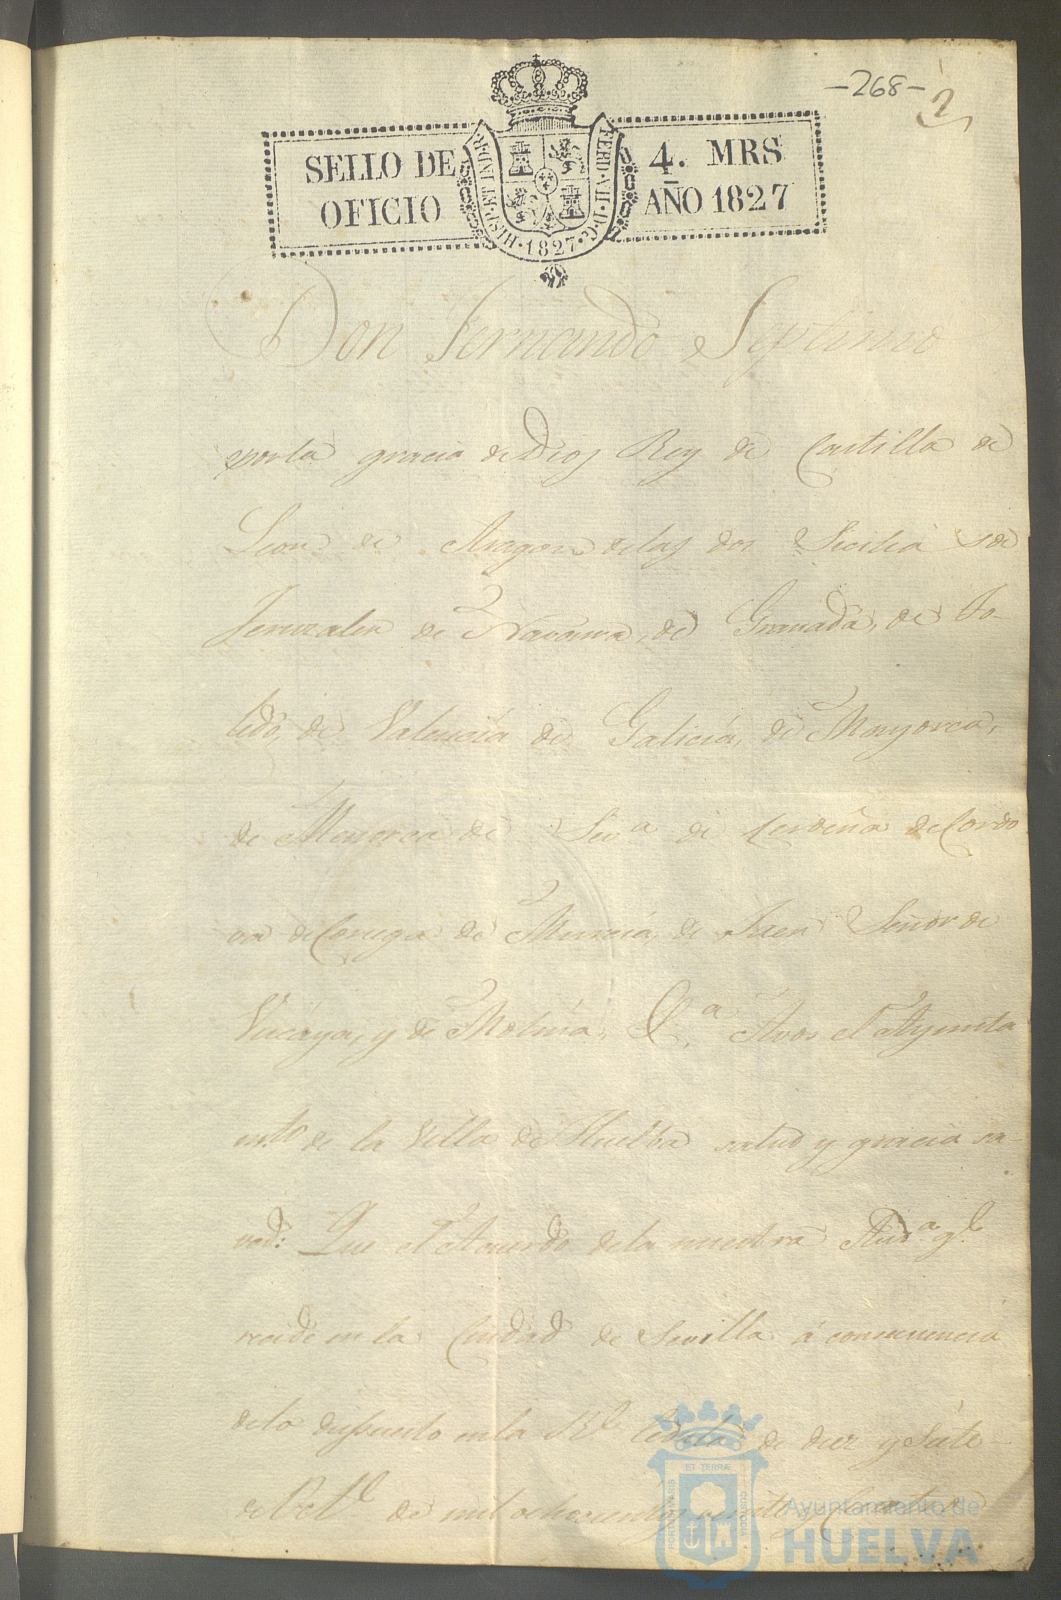 -268-
2
SELLO DE
OFICIO
HISP. ET IND. R.
FERD. VII. D. G.
1827
4. MRS
AÑO 1827
Don Fernando Septimo
por la gracia de Dios Rey de Castilla de
Leon de Aragon de las dos Sicilias de
Jeruzalen de Navarra, de Granada, de To-
ledo, de Valencia de Galicia, de Mayorca,
de Menorca de Sevª de Cerdeña de Cordo
va de Corcega de Murcia, de Jaen Señor de
Vizcaya, y de Molina, &ª A vos el Ayunta
mto de la Villa de Huelba salud y gracia sa-
ved: Que el Acuerdo de la nuestra Audª gl
recide en la Ciudad de Sevilla á concecuencia
de lo dispuesto en la Rl Cedula de diez y siete
de Octl de mil ochocientos veinte y cuatro
Ayuntamiento de
HUELVA
PORTUS MARIS
ET TERRÆ
CUSTODIA